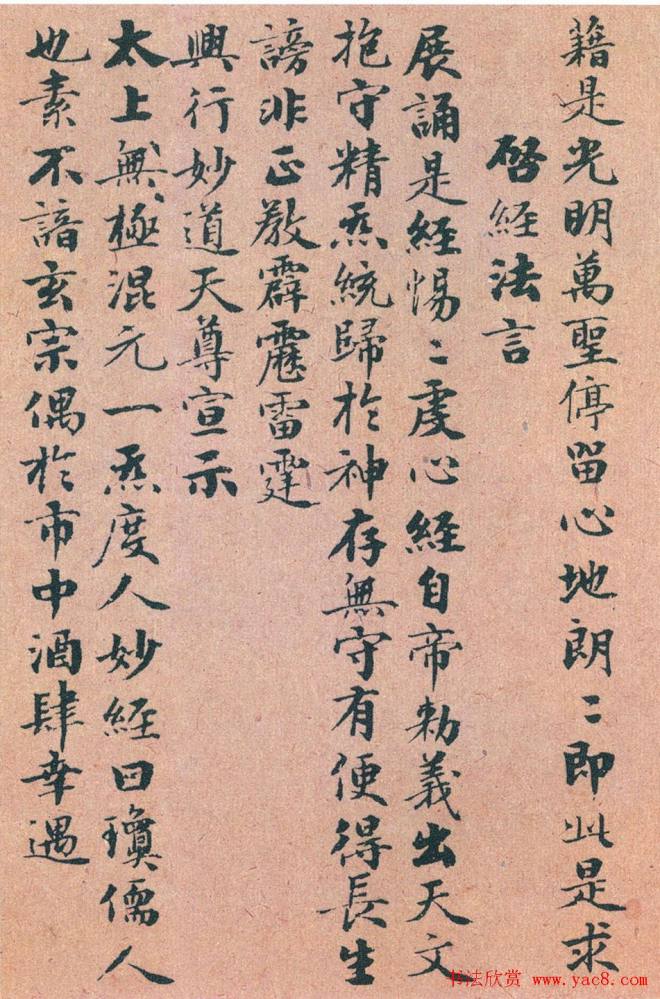 籍是光明萬聖停留心地朗〻即此是求
啓經法言
展誦是經惕〻虔心經自帝勑義出天文
抱守精炁統歸於神存無守有便得長生
謗非正教霹靂雷霆
興行妙道天尊宣示
太上無極混元一炁度人妙經曰瓊儒人
也素不諳玄宗偶於市中酒肆幸遇
书法欣赏 www.yac8.com